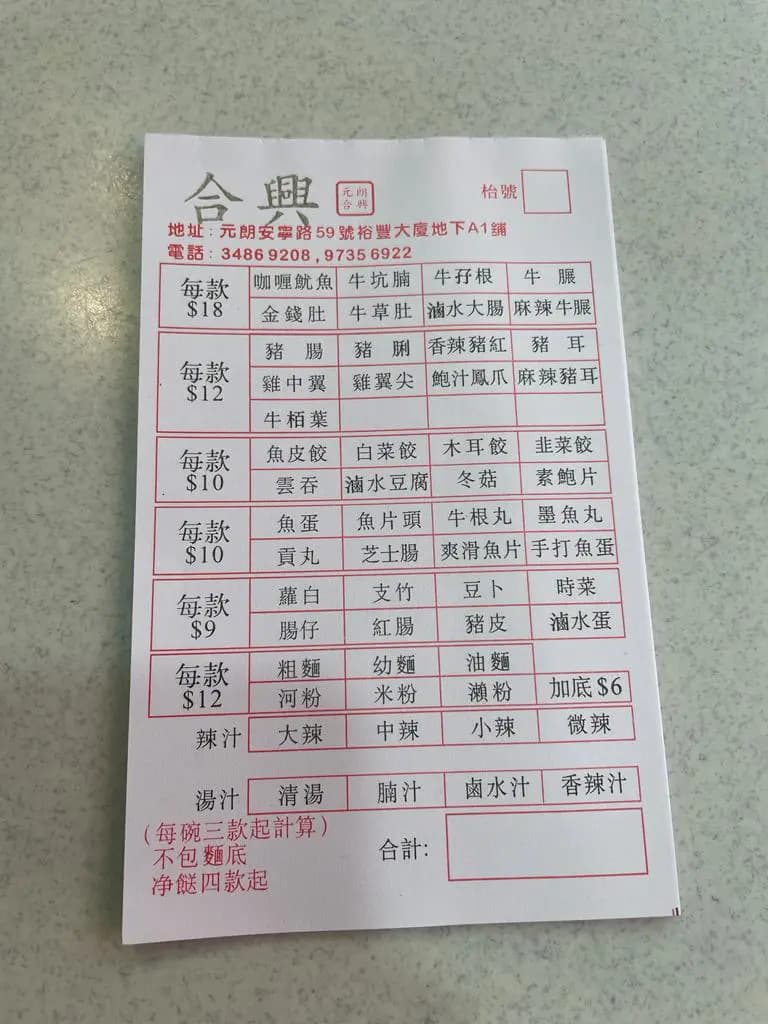 合興 元朗合興 枱號
地址：元朗安寧路59號裕豐大廈地下A1舖
電話：3486 9208 , 9735 6922
每款 $18
咖喱魷魚 牛坑腩 牛孖根 牛𦟌
金錢肚 牛草肚 滷水大腸 麻辣牛𦟌
每款 $12
豬腸 豬脷 香辣豬紅 豬耳
雞中翼 雞翼尖 鮑汁鳳爪 麻辣豬耳
牛栢葉
每款 $10
魚皮餃 白菜餃 木耳餃 韭菜餃
雲吞 滷水豆腐 冬菇 素鮑片
每款 $10
魚蛋 魚片頭 牛根丸 墨魚丸
貢丸 芝士腸 爽滑魚片 手打魚蛋
每款 $9
蘿白 支竹 豆卜 時菜
腸仔 紅腸 豬皮 滷水蛋
每款 $12
粗麵 幼麵 油麵
河粉 米粉 瀨粉 加底 $6
辣汁 大辣 中辣 小辣 微辣
湯汁 清湯 腩汁 鹵水汁 香辣汁
(每碗三款起計算)
不包麵底
净餸四款起
合計: